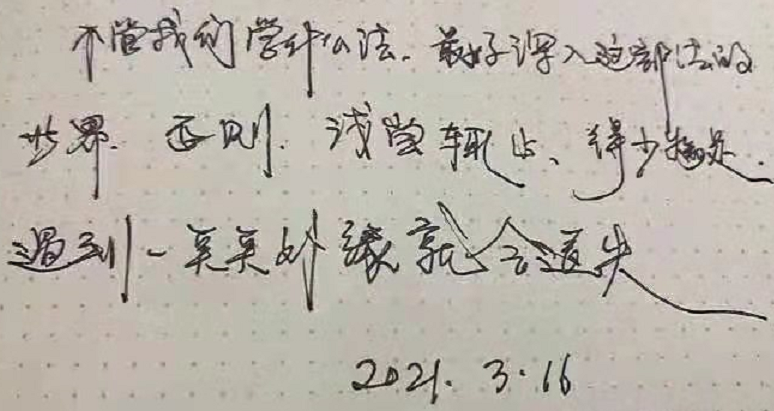 不管我们学什么法.最好深入这部法的
世界.否则.浅尝辄止、得少为足.
遇到一点点外缘就会退失
2021.3.16